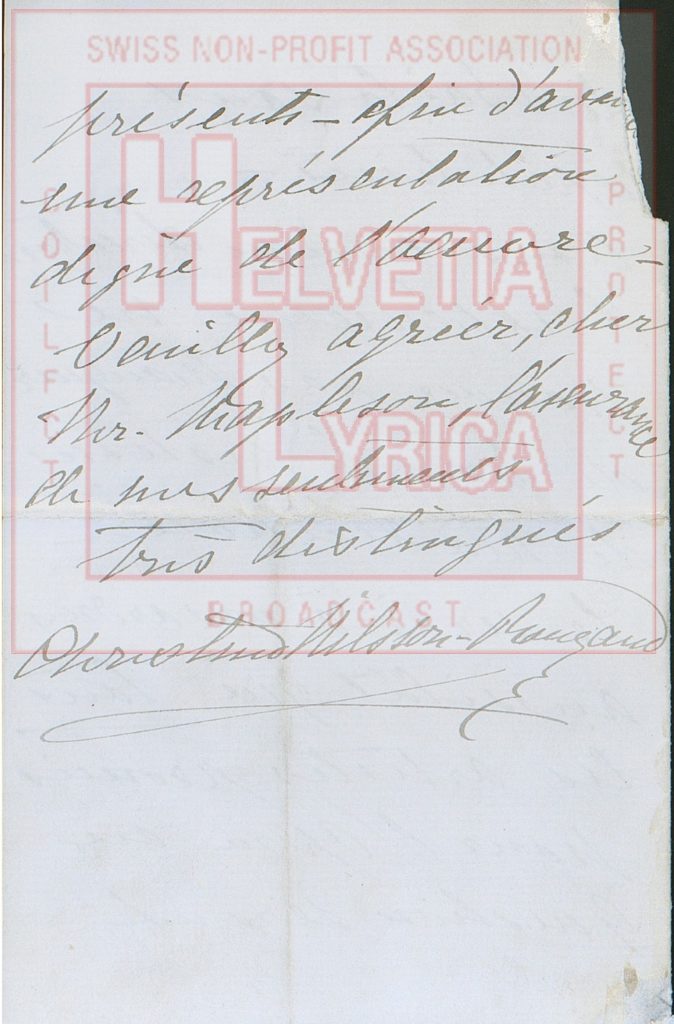 SWISS NON-PROFIT ASSOCIATION
présents - afin d'avoir
une représentation
digne de l'oeuvre -
Veuillez agréer, cher
Mr. Mapleson, l'assurance
de mes sentiments
très distingués
Christine Nilsson-Rouzaud
HELVETIA
LYRICA
PROJECT
BROADCAST